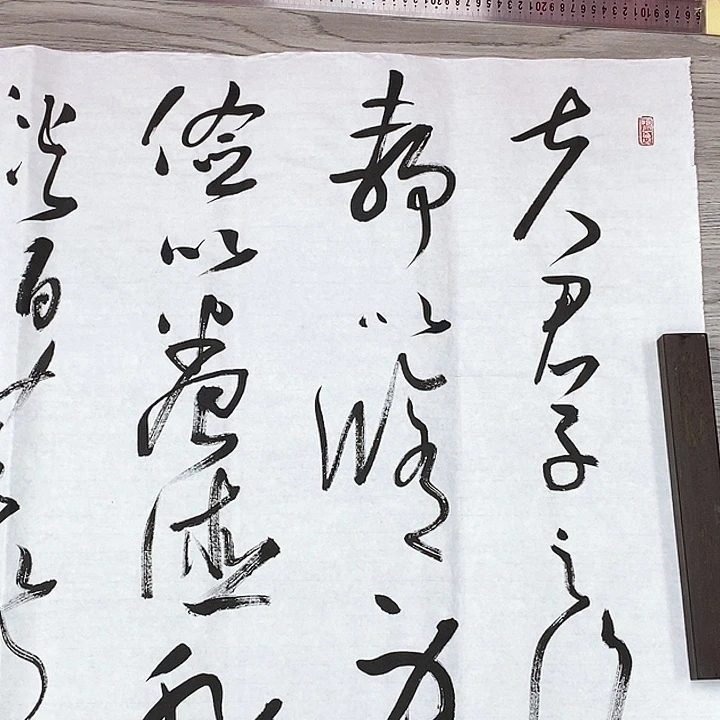 夫君子之行
静以修身
俭以养德非
淡泊无以